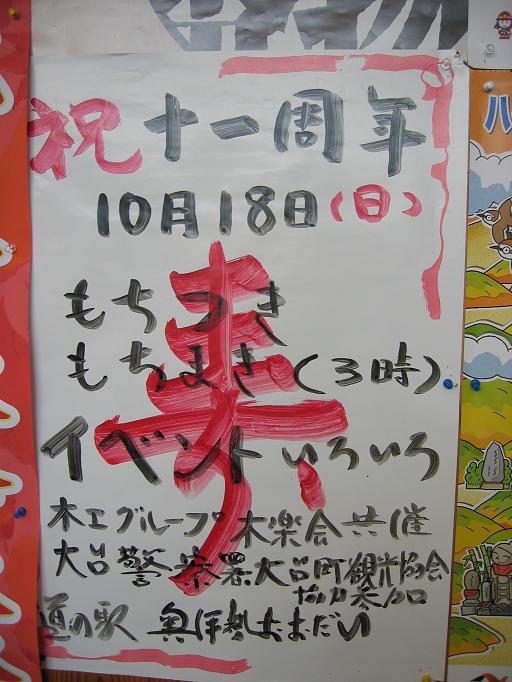 祝十一周年
10月18日(日)
寿
もちつき
もちまき(3時)
イベントいろいろ
木工グループ木楽会共催
大台警察署大台町観光協会
協力参加
道の駅 奥伊勢おおだい
ハ